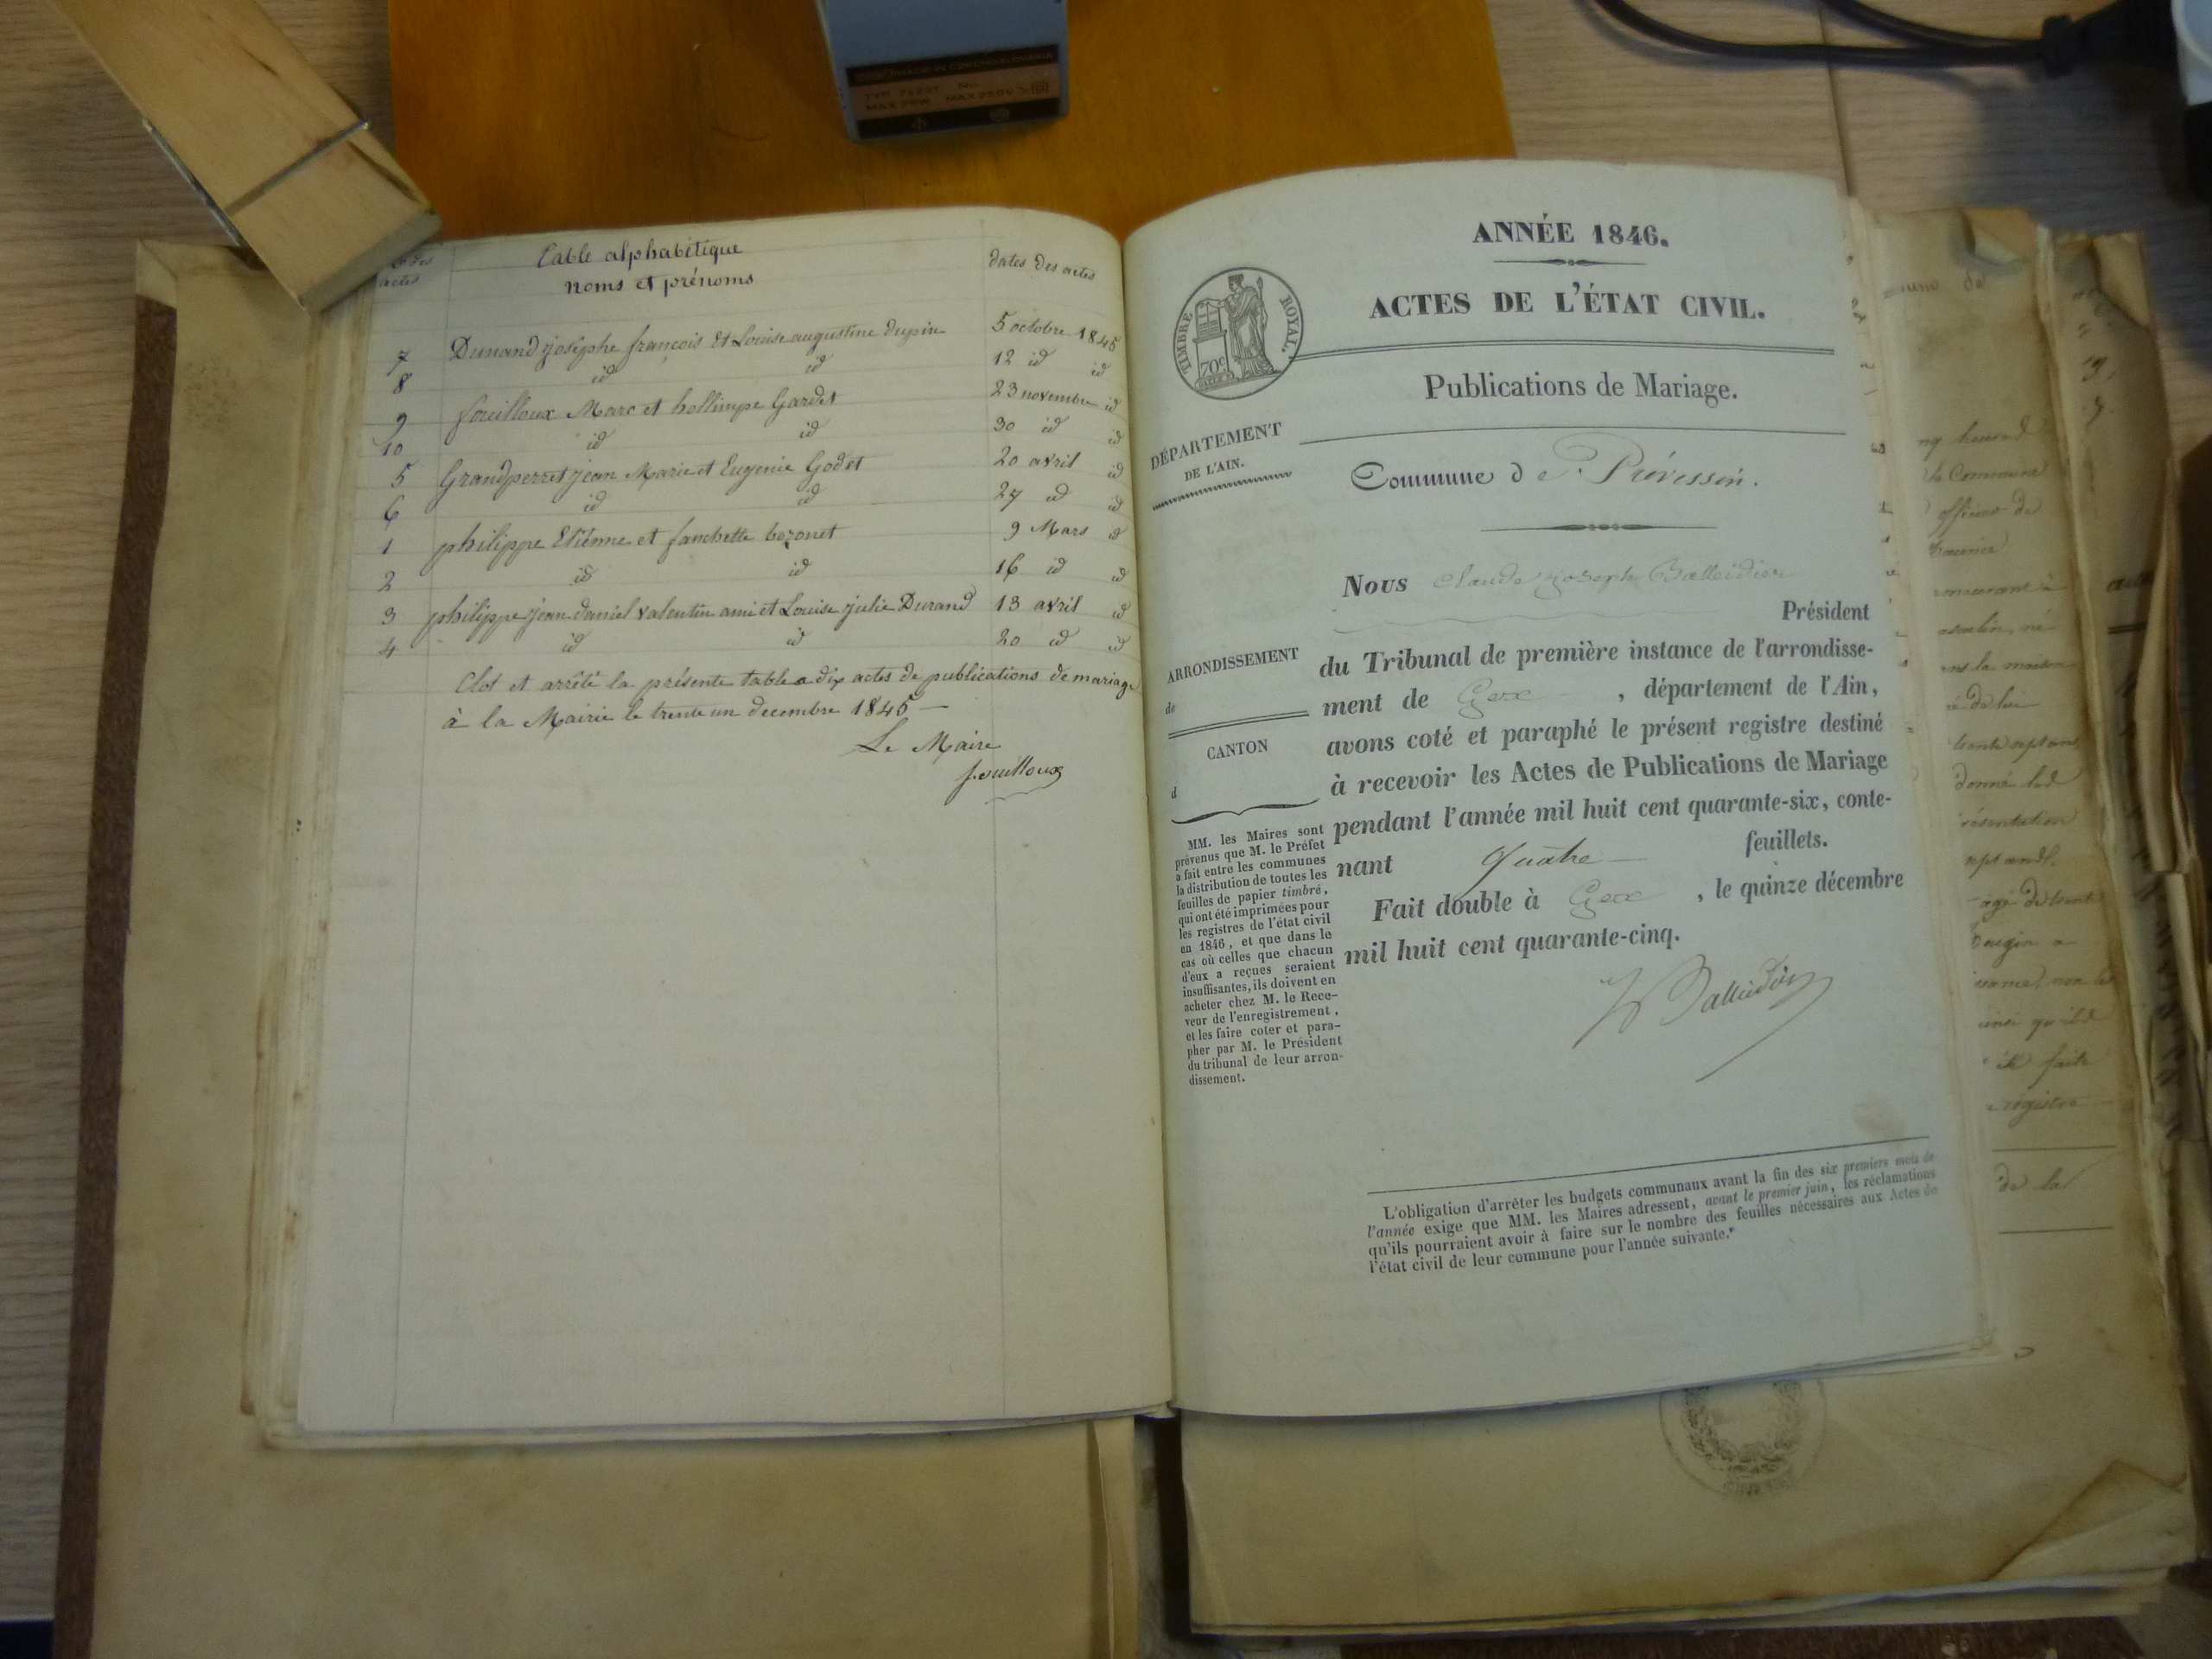 Nos des actes
Table alphabétique
noms et prénoms
dates des actes
7 Dunand josephe françois Et Louise augustine dupin 5 octobre 1845
8 id id 12 id id
9 fouilloux Marc et hollimpe Gardet 23 novembre id
10 id id 30 id id
5 Grandperret jean Marie et Eugenie Godet 20 avril id
6 id id 27 id id
1 philippe Etienne et fanchette bozonet 9 Mars id
2 id id 16 id id
3 philippe jean daniel valentin ami et Louise julie Durand 13 avril id
4 id id 20 id id
Clos et arrêté la présente table a dix actes de publications de mariage
à la Mairie le trente un decembre 1845
Le Maire
fouilloux
ANNÉE 1846.
ACTES DE L'ÉTAT CIVIL.
TIMBRE ROYAL.
70c
Publications de Mariage.
DÉPARTEMENT
DE L'AIN.
Commune de Prévessin.
Nous Claude Joseph Balleidier
Président
ARRONDISSEMENT
de
CANTON
d
du Tribunal de première instance de l'arrondisse-
ment de Gex , département de l'Ain,
avons coté et paraphé le présent registre destiné
à recevoir les Actes de Publications de Mariage
pendant l'année mil huit cent quarante-six, conte-
nant quatre feuillets.
Fait double à Gex , le quinze décembre
mil huit cent quarante-cinq.
Balleidier
MM. les Maires sont
prévenus que M. le Préfet
a fait entre les communes
la distribution de toutes les
feuilles de papier timbré,
qui ont été imprimées pour
les registres de l'état civil
en 1846, et que dans le
cas où celles que chacun
d'eux a reçues seraient
insuffisantes, ils doivent en
acheter chez M. le Rece-
veur de l'enregistrement,
et les faire coter et para-
pher par M. le Président
du tribunal de leur arron-
dissement.
L'obligation d'arrêter les budgets communaux avant la fin des six premiers mois de
l'année exige que MM. les Maires adressent, avant le premier juin, les réclamations
qu'ils pourraient avoir à faire sur le nombre des feuilles nécessaires aux Actes de
l'état civil de leur commune pour l'année suivante.
la Commune
officier de
la maison
trente sept ans
donné
âgé de trente
faite
registre
de la